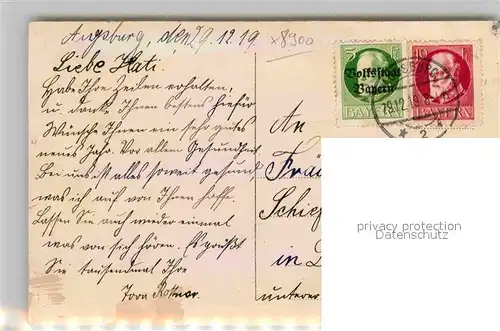 Augsburg, den 29.12.19 x8900
Liebe Kati.
Habe Ihre Zeilen erhalten,
u. danke Ihnen bestens hiefür
Wünsche Ihnen ein sehr gutes
neues Jahr. Vor allem Gesundheit
Bei uns ist alles soweit gesund
was ich auf von Ihnen hoffe.
Lassen Sie auch wieder einmal
was von sich hören. Es grüßt
Sie tausendmal Ihre
Volksstaat
Bayern
BAYERN
10
BAYERN
29.12.19
2
An
in
unterer
privacy protection
Datenschutz